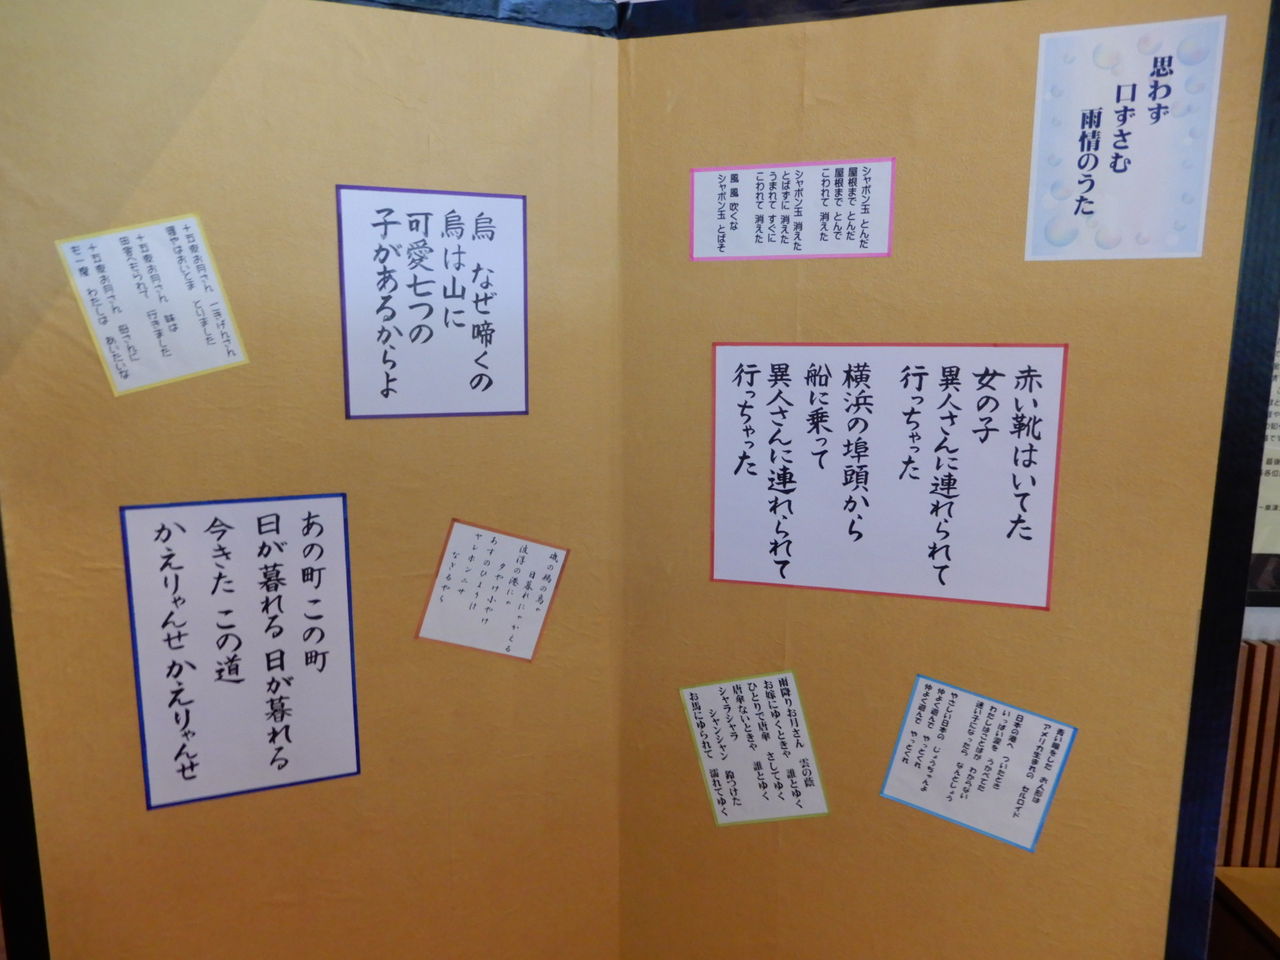 思わず
口ずさむ
雨情のうた
シャボン玉 とんだ
屋根まで とんだ
屋根まで とんで
こわれて 消えた
シャボン玉 消えた
とばずに 消えた
うまれて すぐに
こわれて 消えた
風 風 吹くな
シャボン玉 とばそ
赤い靴はいてた
女の子
異人さんに連れられて
行っちゃった
横浜の埠頭から
船に乗って
異人さんに連れられて
行っちゃった
青い眼をした お人形は
アメリカ生まれの セルロイド
日本の港へ ついたとき
いっぱい涙を うかべてた
わたしはことばが わからない
迷い子になったら なんとしょう
やさしい日本の じょうちゃんよ
仲よく遊んで やっとくれ
仲よく遊んで やっとくれ
雨降りお月さん 雲の蔭
お嫁にゆくときゃ 誰とゆく
ひとりで唐傘 さしてゆく
唐傘ないときゃ 誰とゆく
シャラシャラ シャンシャン 鈴つけた
お馬にゆられて 濡れてゆく
烏 なぜ啼くの
烏は山に
可愛七つの
子があるからよ
磯の鵜の鳥ゃ
日暮れにゃかえる
波浮の港にゃ
夕やけ小やけ
あすのひよりは
ヤレホンニサ
なぎるやら
十五夜お月さん ごきげんさん
婆やはおいとま とりました
十五夜お月さん 妹は
田舎へもられて 行きました
十五夜お月さん 母さんに
も一度 わたしは あいたいな
あの町 この町
日が暮れる 日が暮れる
今きた この道
かえりゃんせ かえりゃんせ